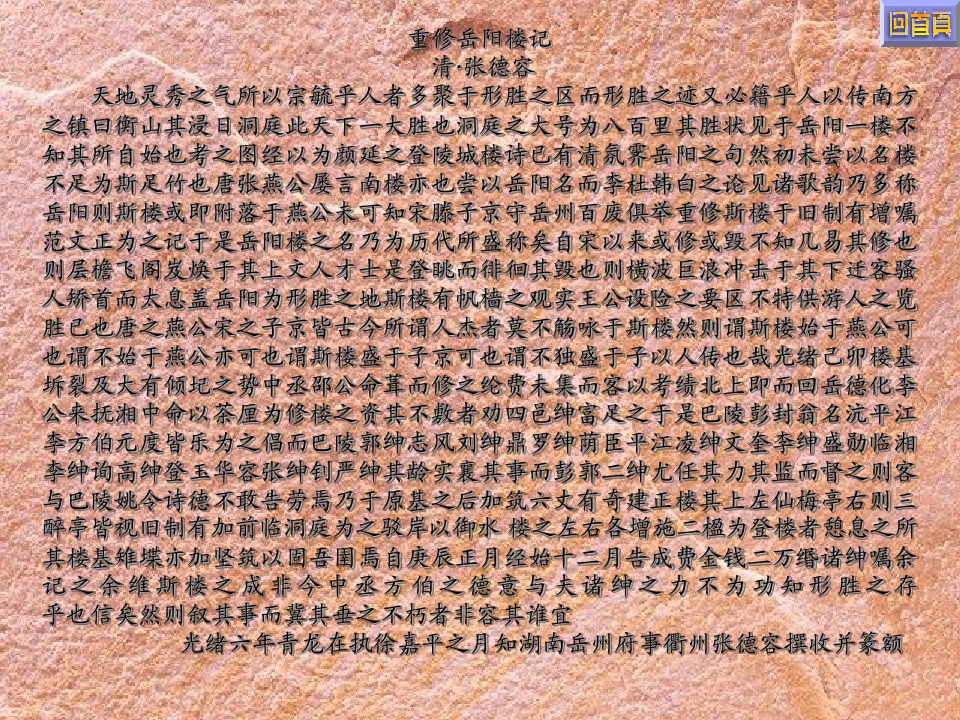 回首頁
重修岳阳楼记
清·张德容
天地灵秀之气所以宗毓乎人者多聚于形胜之区而形胜之迹又必籍乎人以传南方
之镇曰衡山其浸日洞庭此天下一大胜也洞庭之大号为八百里其胜状见于岳阳一楼不
知其所自始也考之图经以为颜延之登陵城楼诗已有清氛霁岳阳之句然初未尝以名楼
不足为斯足竹也唐张燕公屡言南楼亦也尝以岳阳名而李杜韩白之论见诸歌韵乃多称
岳阳则斯楼或即附落于燕公未可知宋滕子京守岳州百废俱举重修斯楼于旧制有增嘱
范文正为之记于是岳阳楼之名乃为历代所盛称矣自宋以来或修或毁不知几易其修也
则层檐飞阁岌焕于其上文人才士是登眺而徘徊其毁也则横波巨浪冲击于其下迁客骚
人矫首而太息盖岳阳为形胜之地斯楼有帆樯之观实王公设险之要区不特供游人之览
胜已也唐之燕公宋之子京皆古今所谓人杰者莫不觞咏于斯楼然则谓斯楼始于燕公可
也谓不始于燕公亦可也谓斯楼盛于子京可也谓不独盛于子以人传也哉光绪己卯楼基
坼裂及大有倾圮之势中丞邵公命葺而修之纶费未集而客以考绩北上即而回岳德化李
公来抚湘中命以茶厘为修楼之资其不敷者劝四邑绅富足之于是巴陵彭封翁名沆平江
李方伯元度皆乐为之倡而巴陵郭绅志风刘绅鼎罗绅荫臣平江凌绅文奎李绅盛勋临湘
李绅询高绅登玉华容张绅钊严绅其龄实襄其事而彭郭二绅尤任其力其监而督之则客
与巴陵姚令诗德不敢告劳焉乃于原基之后加筑六丈有奇建正楼其上左仙梅亭右则三
醉亭皆视旧制有加前临洞庭为之驳岸以御水 楼之左右各增施二楹为登楼者憩息之所
其楼基雉堞亦加坚筑以固吾圉焉自庚辰正月经始十二月告成费金钱二万缗诸绅嘱余
记之余维斯楼之成非今中丞方伯之德意与夫诸绅之力不为功知形胜之存
乎也信矣然则叙其事而冀其垂之不朽者非容其谁宜
光绪六年青龙在执徐嘉平之月知湖南岳州府事衢州张德容撰收并篆额